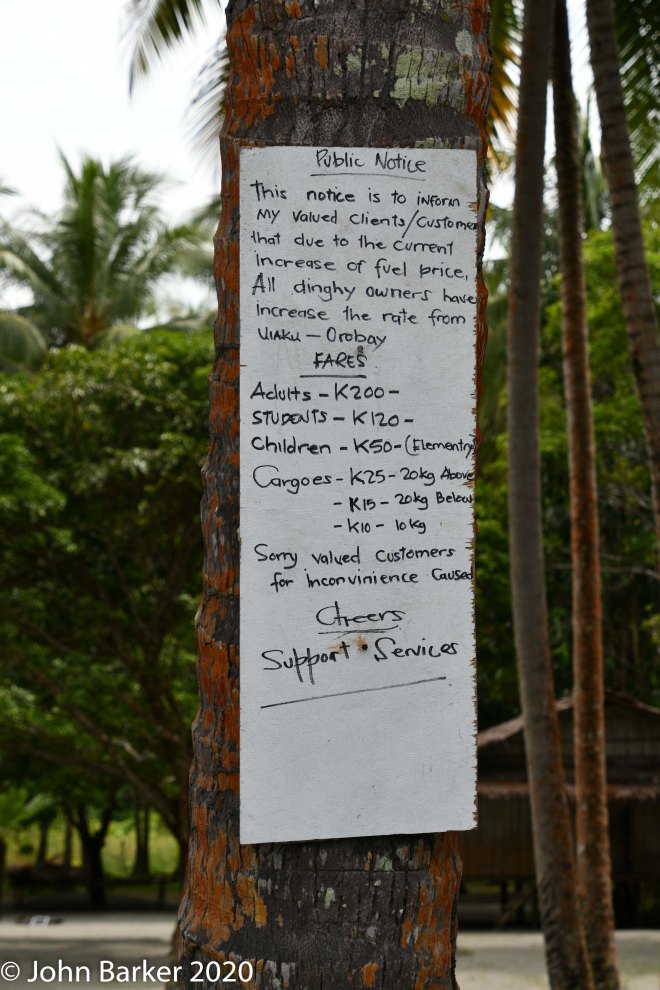 Public Notice
This notice is to inform
My valued clients/Custome
that due to the current
increase of fuel price,
All dinghy owners have
increase the rate from
UIAKU - Orobay
FARES
Adults - K200 -
STUDENTS - K120 -
Children - K50 - (Elementry
Cargoes - K25 - 20kg Above
- K15 - 20kg Below
- K10 - 10kg
Sorry valued customers
for inconvinience Caused
Cheers
Support Services
© John Barker 2020